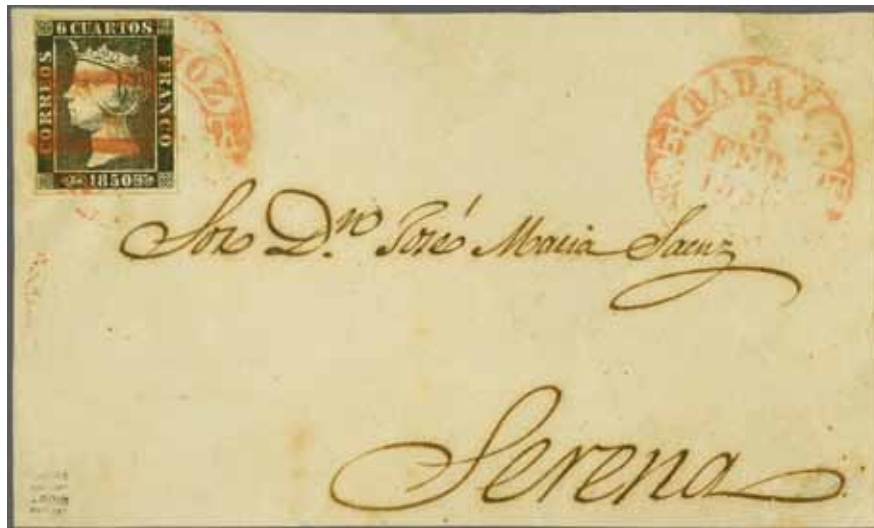 6 CUARTOS
CORREOS
FRANCO
1850
OZ
BADAJOZ
5
FEB
Sor Dn José Maria Saenz
Serena